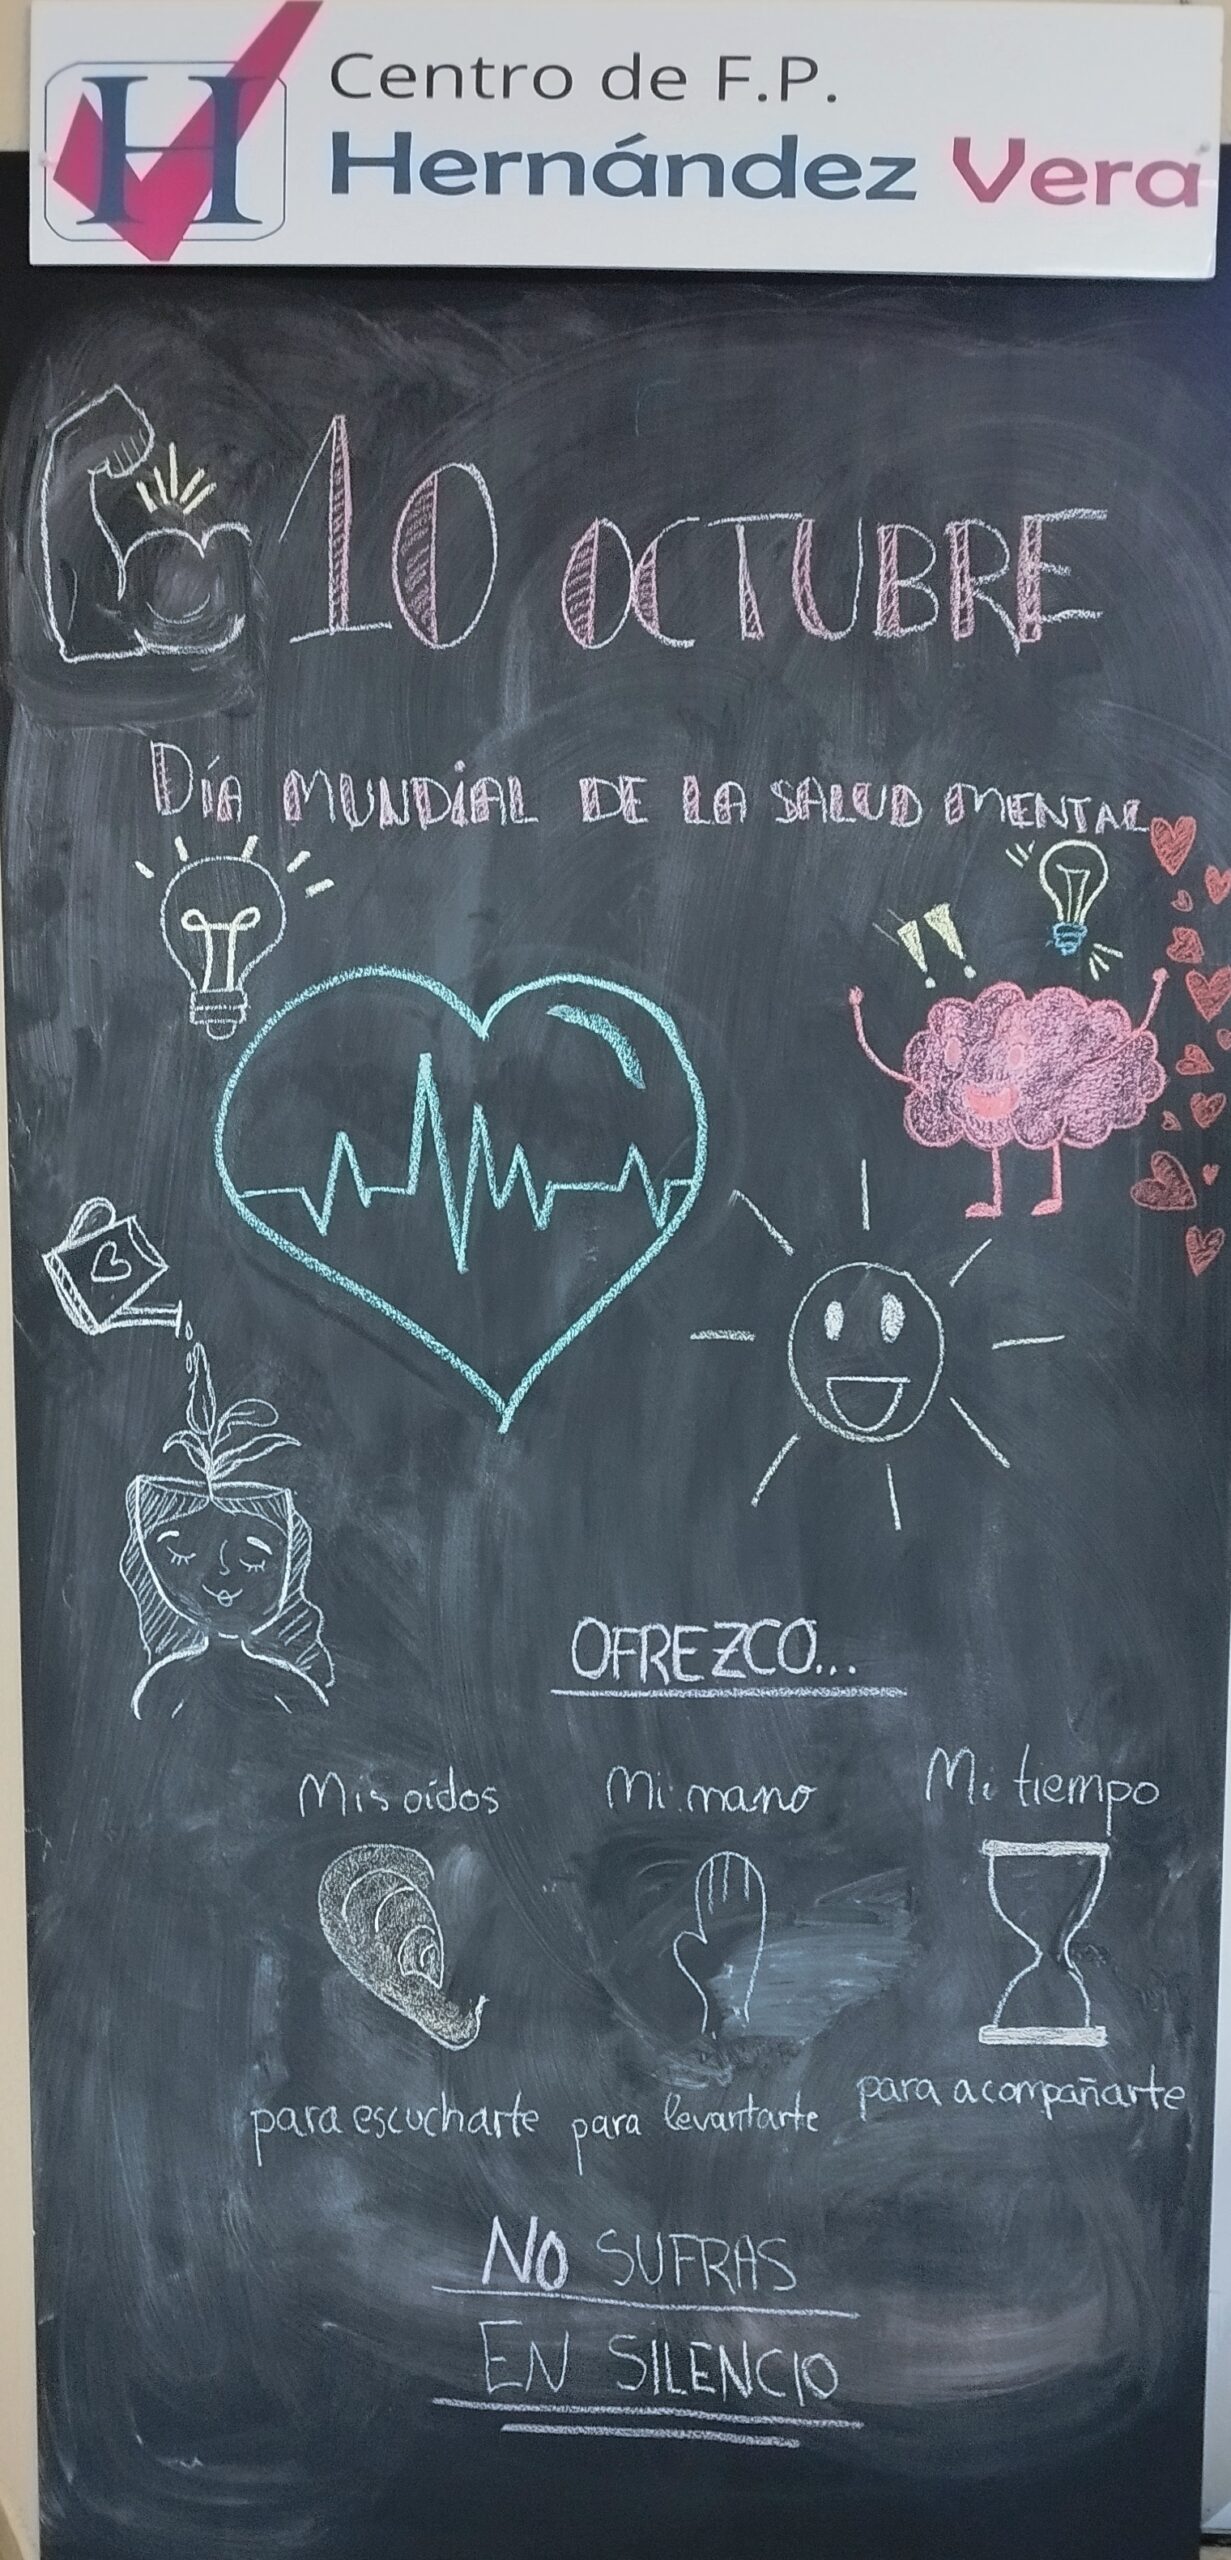 H
Centro de F.P.
Hernández Vera
10 OCTUBRE
DíA MUNDiAL DE LA SALUD MENTAL
!!
OFREZCO...
Mis oídos Mi mano Mi tiempo
para escucharte para levantarte para acompañarte
NO SUFRAS
EN SILENCIO